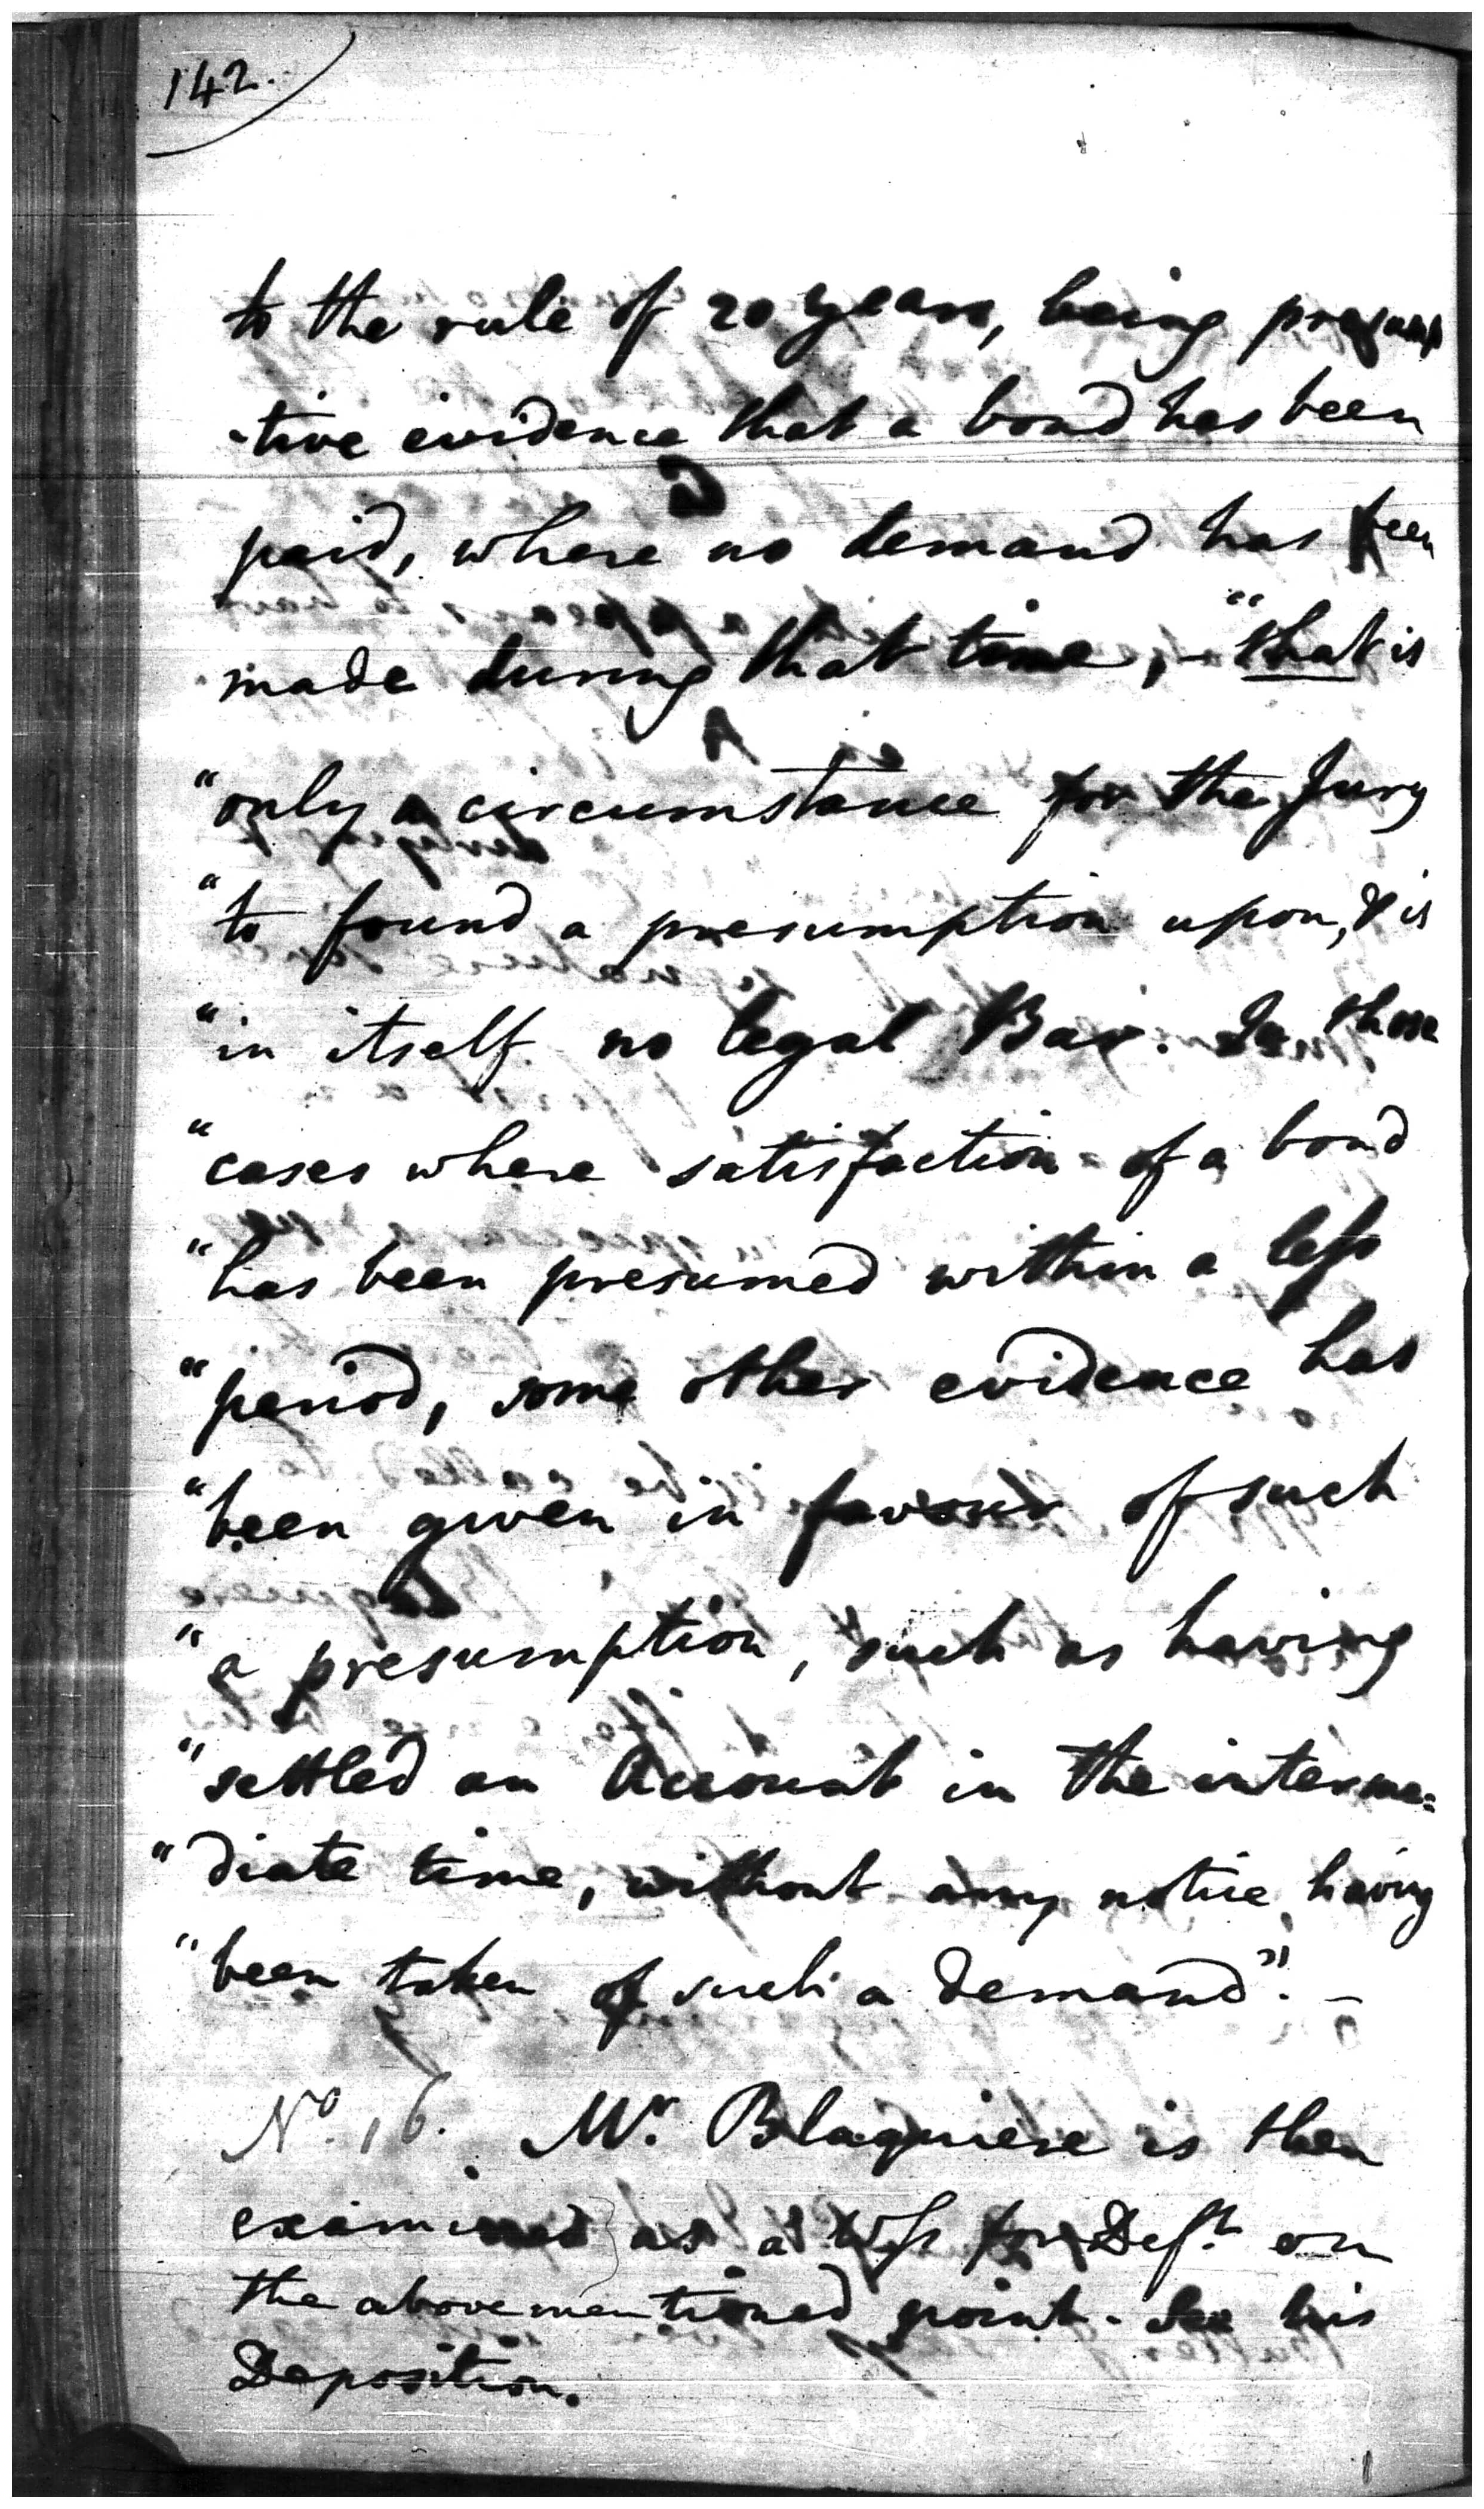 142.
to the rule of 20 years, being presump
-tive evidence that a bond has been
paid, where no demand has been
made during that time, - "that is
"only a circumstance for the Jury
"to found a presumption upon, & is
"in itself no legal Bar. In those
"cases where satisfaction of a bond
"has been presumed within a less
"period, some other evidence has
"been given in favour of such
"a presumption, such as having
"settled an Account in the interme=
"diate time, without any notice having
"been taken of such a demand". -
No. 16. Mr. Blaquiere is then
examined as a Wss for Deft. on
the abovementioned point. See his
Deposition.